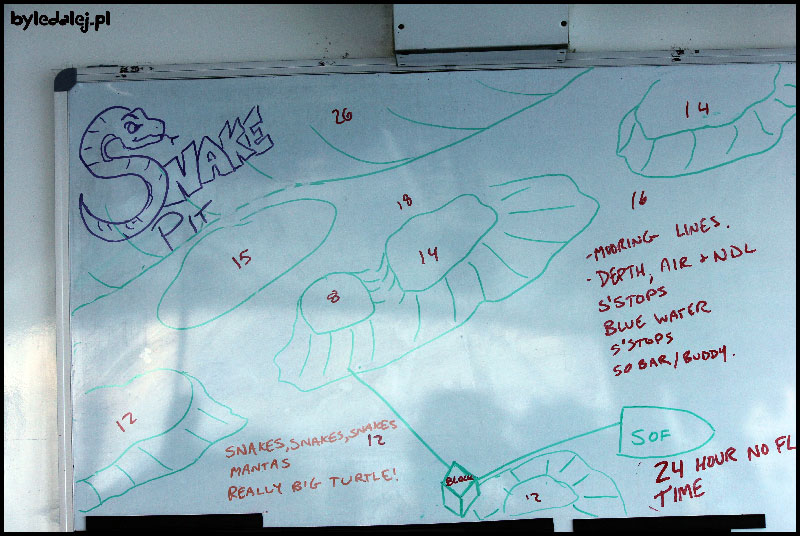 byledalej.pl
SNAKE
PIT
26
14
18
16
15
14
8
- MOORING LINES.
- DEPTH, AIR + NDL
S'STOPS
BLUE WATER
S'STOPS
50 BAR / BUDDY.
12
SNAKES, SNAKES, SNAKES
12
MANTAS
REALLY BIG TURTLE!
SOF
BLOCK
12
24 HOUR NO FL
TIME